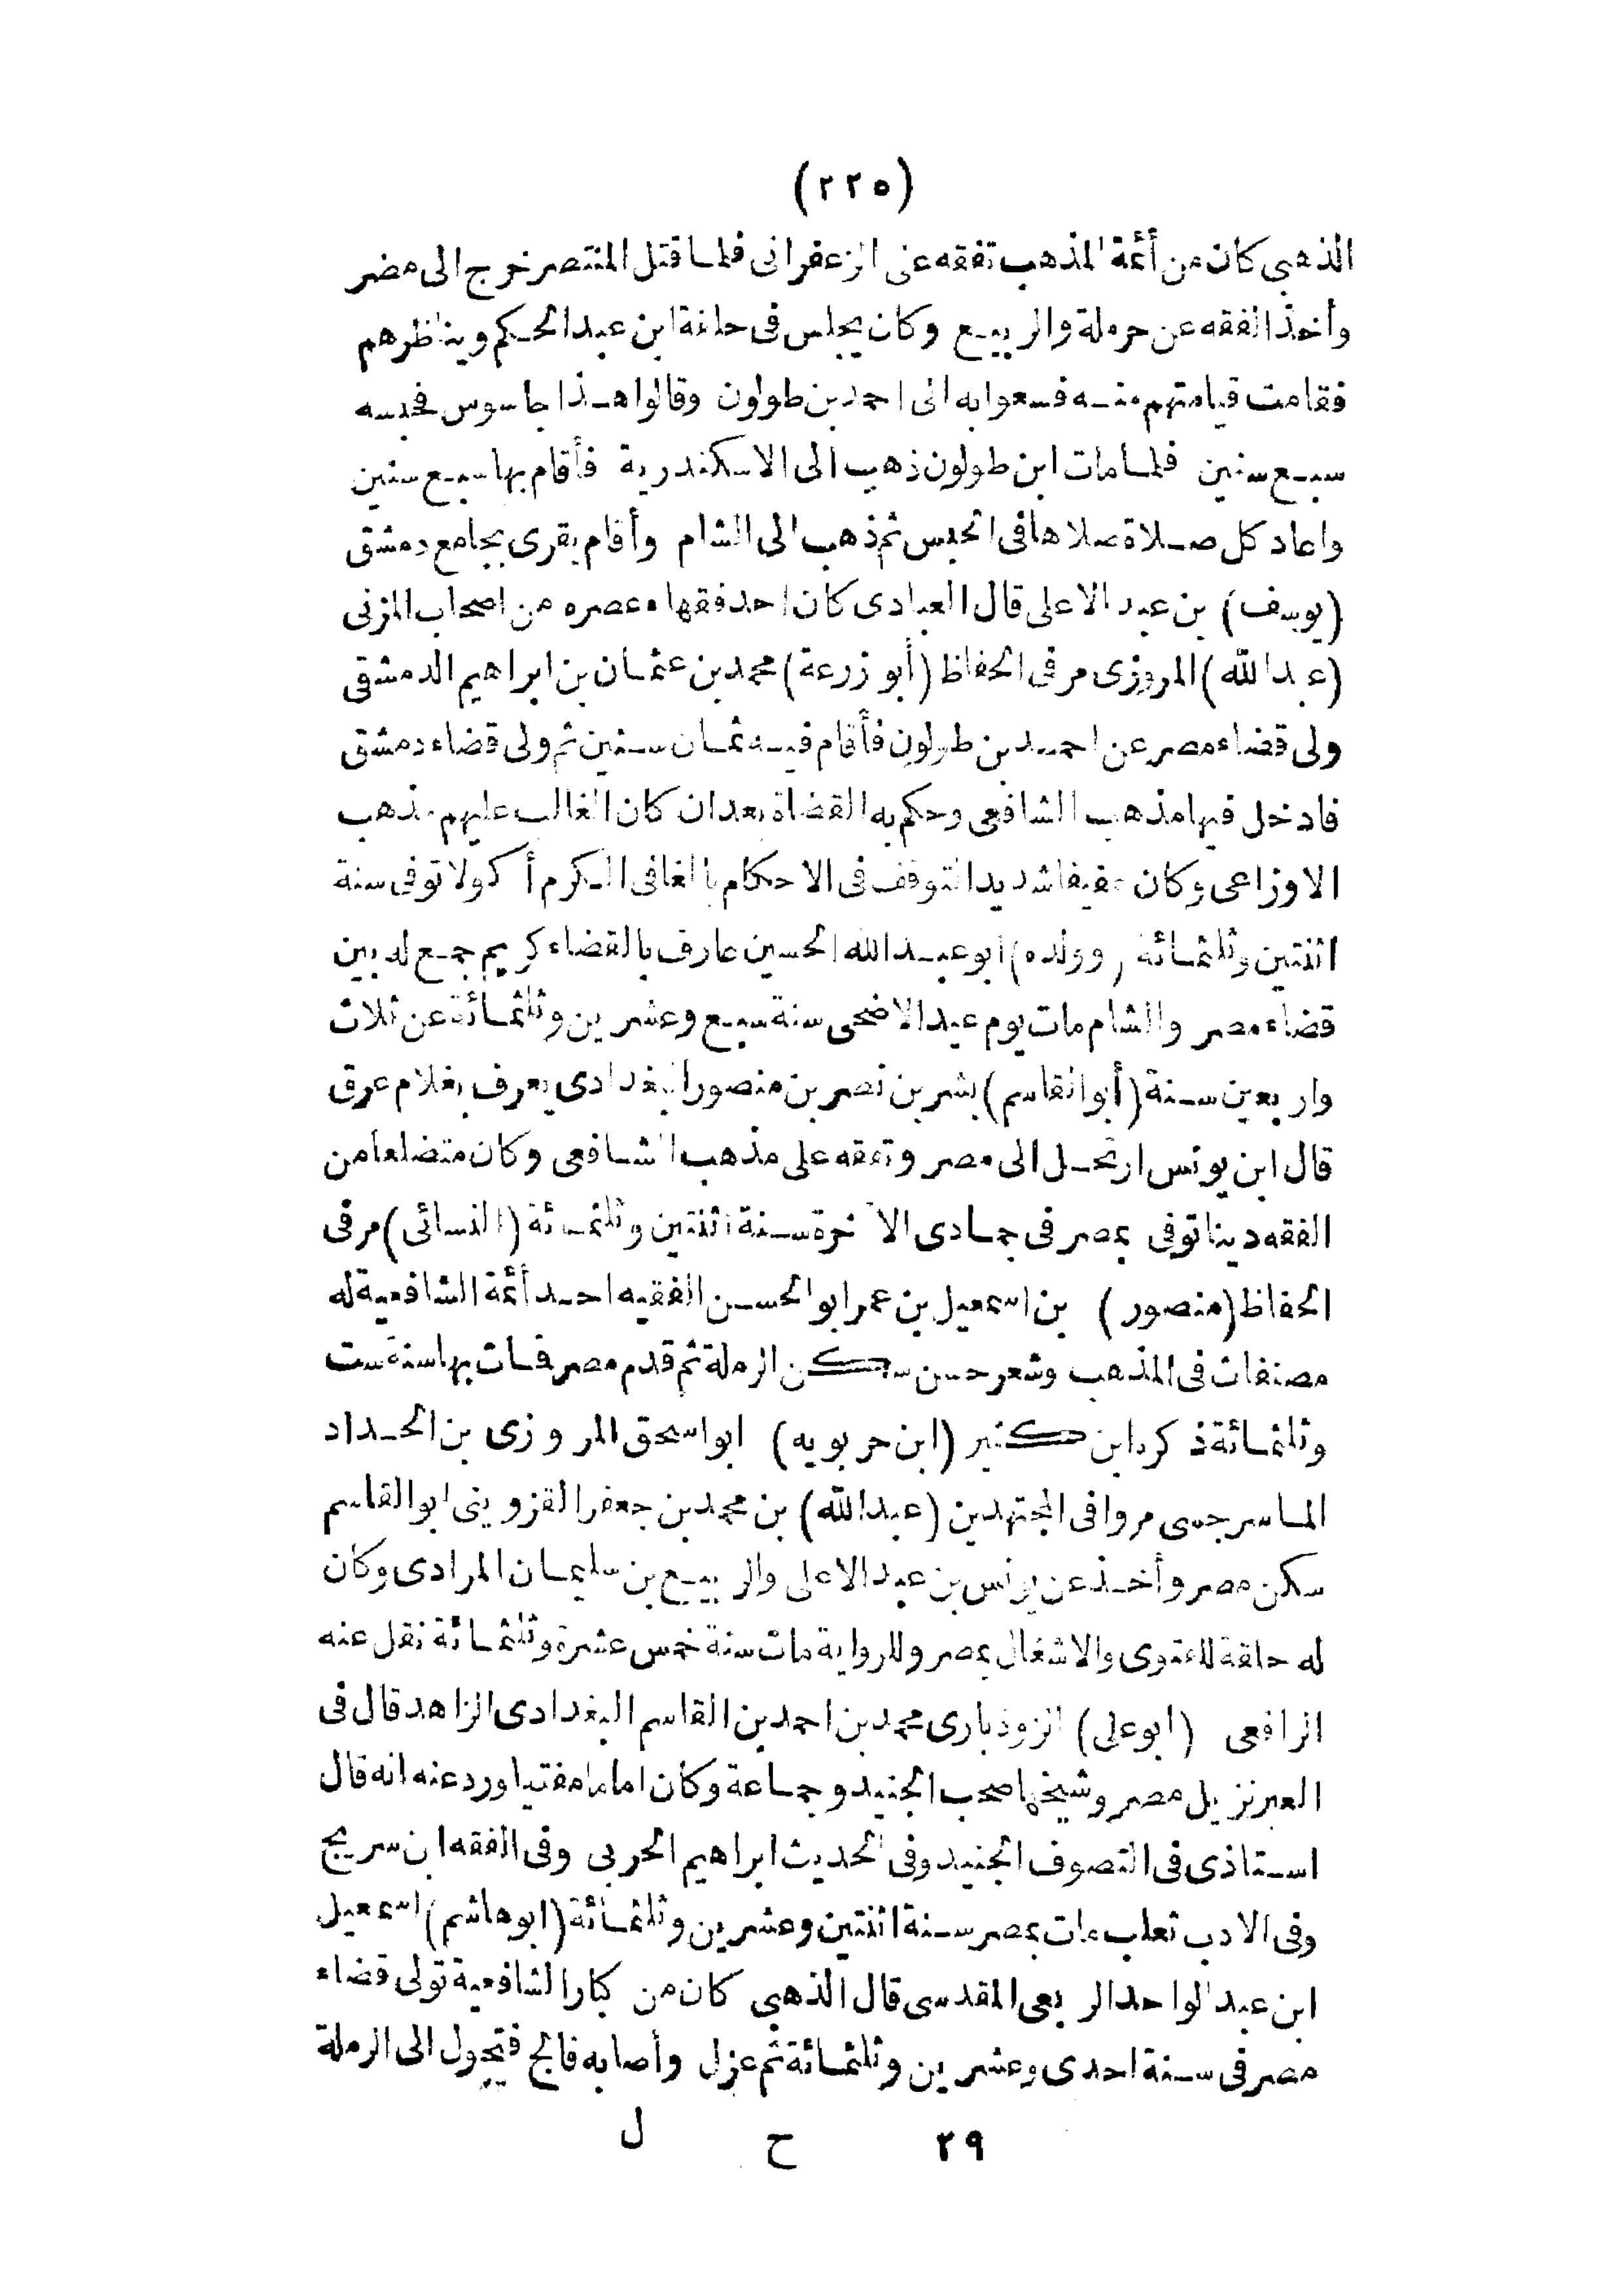 (٢٢٥)
الذهبى كان من أئمة المذهب تفقه عنى الزعفرانى فلما قتل المنتصر خرج الى مضر
وأخذ الفقه عن حرملة والربيع وكان يجلس فى حلقة ابن عبد الحكم ويناظرهم
فقامت قيامتهم منه فسعوا به الى احمد بن طولون وقالوا هذا جاسوس فحبسه
سبع سنين فلما مات ابن طولون ذهب الى الاسكندرية فأقام بها سبع سنين
واعاد كل صلاة صلاها فى الحبس ثم ذهب الى الشام وأقام يقرى بجامع دمشق
(يوسف) بن عبد الاعلى قال العبادى كان احد فقهاء عصره من اصحاب المزنى
(عبد الله) المروزى مر فى الحفاظ (أبو زرعة) محمد بن عثمان بن ابراهيم الدمشقى
ولى قضاء مصر عن احمد بن طولون فأقام فيه ثمان سنين ثم ولى قضاء دمشق
فادخل فيها مذهب الشافعى وحكم به القضاة بعد ان كان الغالب عليهم مذهب
الاوزاعى وكان عفيفا شديد التوقف فى الاحكام بالغا فى الكرم أكولا توفى سنة
اثنتين وثلثمائة (وولده) ابو عبد الله الحسين عارف بالقضاء كريم جمع له بين
قضاء مصر والشام مات يوم عيد الاضحى سنة سبع وعشرين وثلثمائة عن ثلاث
واربعين سنة (أبو القاسم) بشر بن نصر بن منصور البغدادى يعرف بغلام عرق
قال ابن يونس ارتحل الى مصر وتفقه على مذهب الشافعى وكان متضلعا من
الفقه دينا توفى بمصر فى جمادى الآخرة سنة اثنتين وثلثمائة (النسائى) مر فى
الحفاظ (منصور) بن اسمعيل بن عمر ابو الحسن الفقيه احد أئمة الشافعية له
مصنفات فى المذهب وشعر حسن سكن الرملة ثم قدم مصر فمات بها سنة ست
وثلثمائة ذكره ابن كثير (ابن حربويه) ابو اسحق المروزى بن الحداد
الماسرجسى مروا فى المجتهدين (عبد الله) بن محمد بن جعفر القزوينى ابو القاسم
سكن مصر وأخذ عن يونس بن عبد الاعلى والربيع بن سليمان المرادى وكان
له حلقة للفتوى والاشغال بمصر وللرواية مات سنة خمس عشرة وثلثمائة نقل عنه
الرافعى (ابو على) الروذبارى محمد بن احمد بن القاسم البغدادى الزاهد قال فى
العبر نزيل مصر وشيخها صحب الجنيد وجماعة وكان اماما مفتيا ورد عنه انه قال
استاذى فى التصوف الجنيد وفى الحديث ابراهيم الحربى وفى الفقه ابن سريج
وفى الادب ثعلب مات بمصر سنة اثنتين وعشرين وثلثمائة (ابو هاشم) اسمعيل
ابن عبد الواحد الربعى المقدسى قال الذهبى كان من كبار الشافعية تولى قضاء
مصر فى سنة احدى وعشرين وثلثمائة ثم عزل وأصابه فالج فتحول الى الرملة
٢٩ ح ل